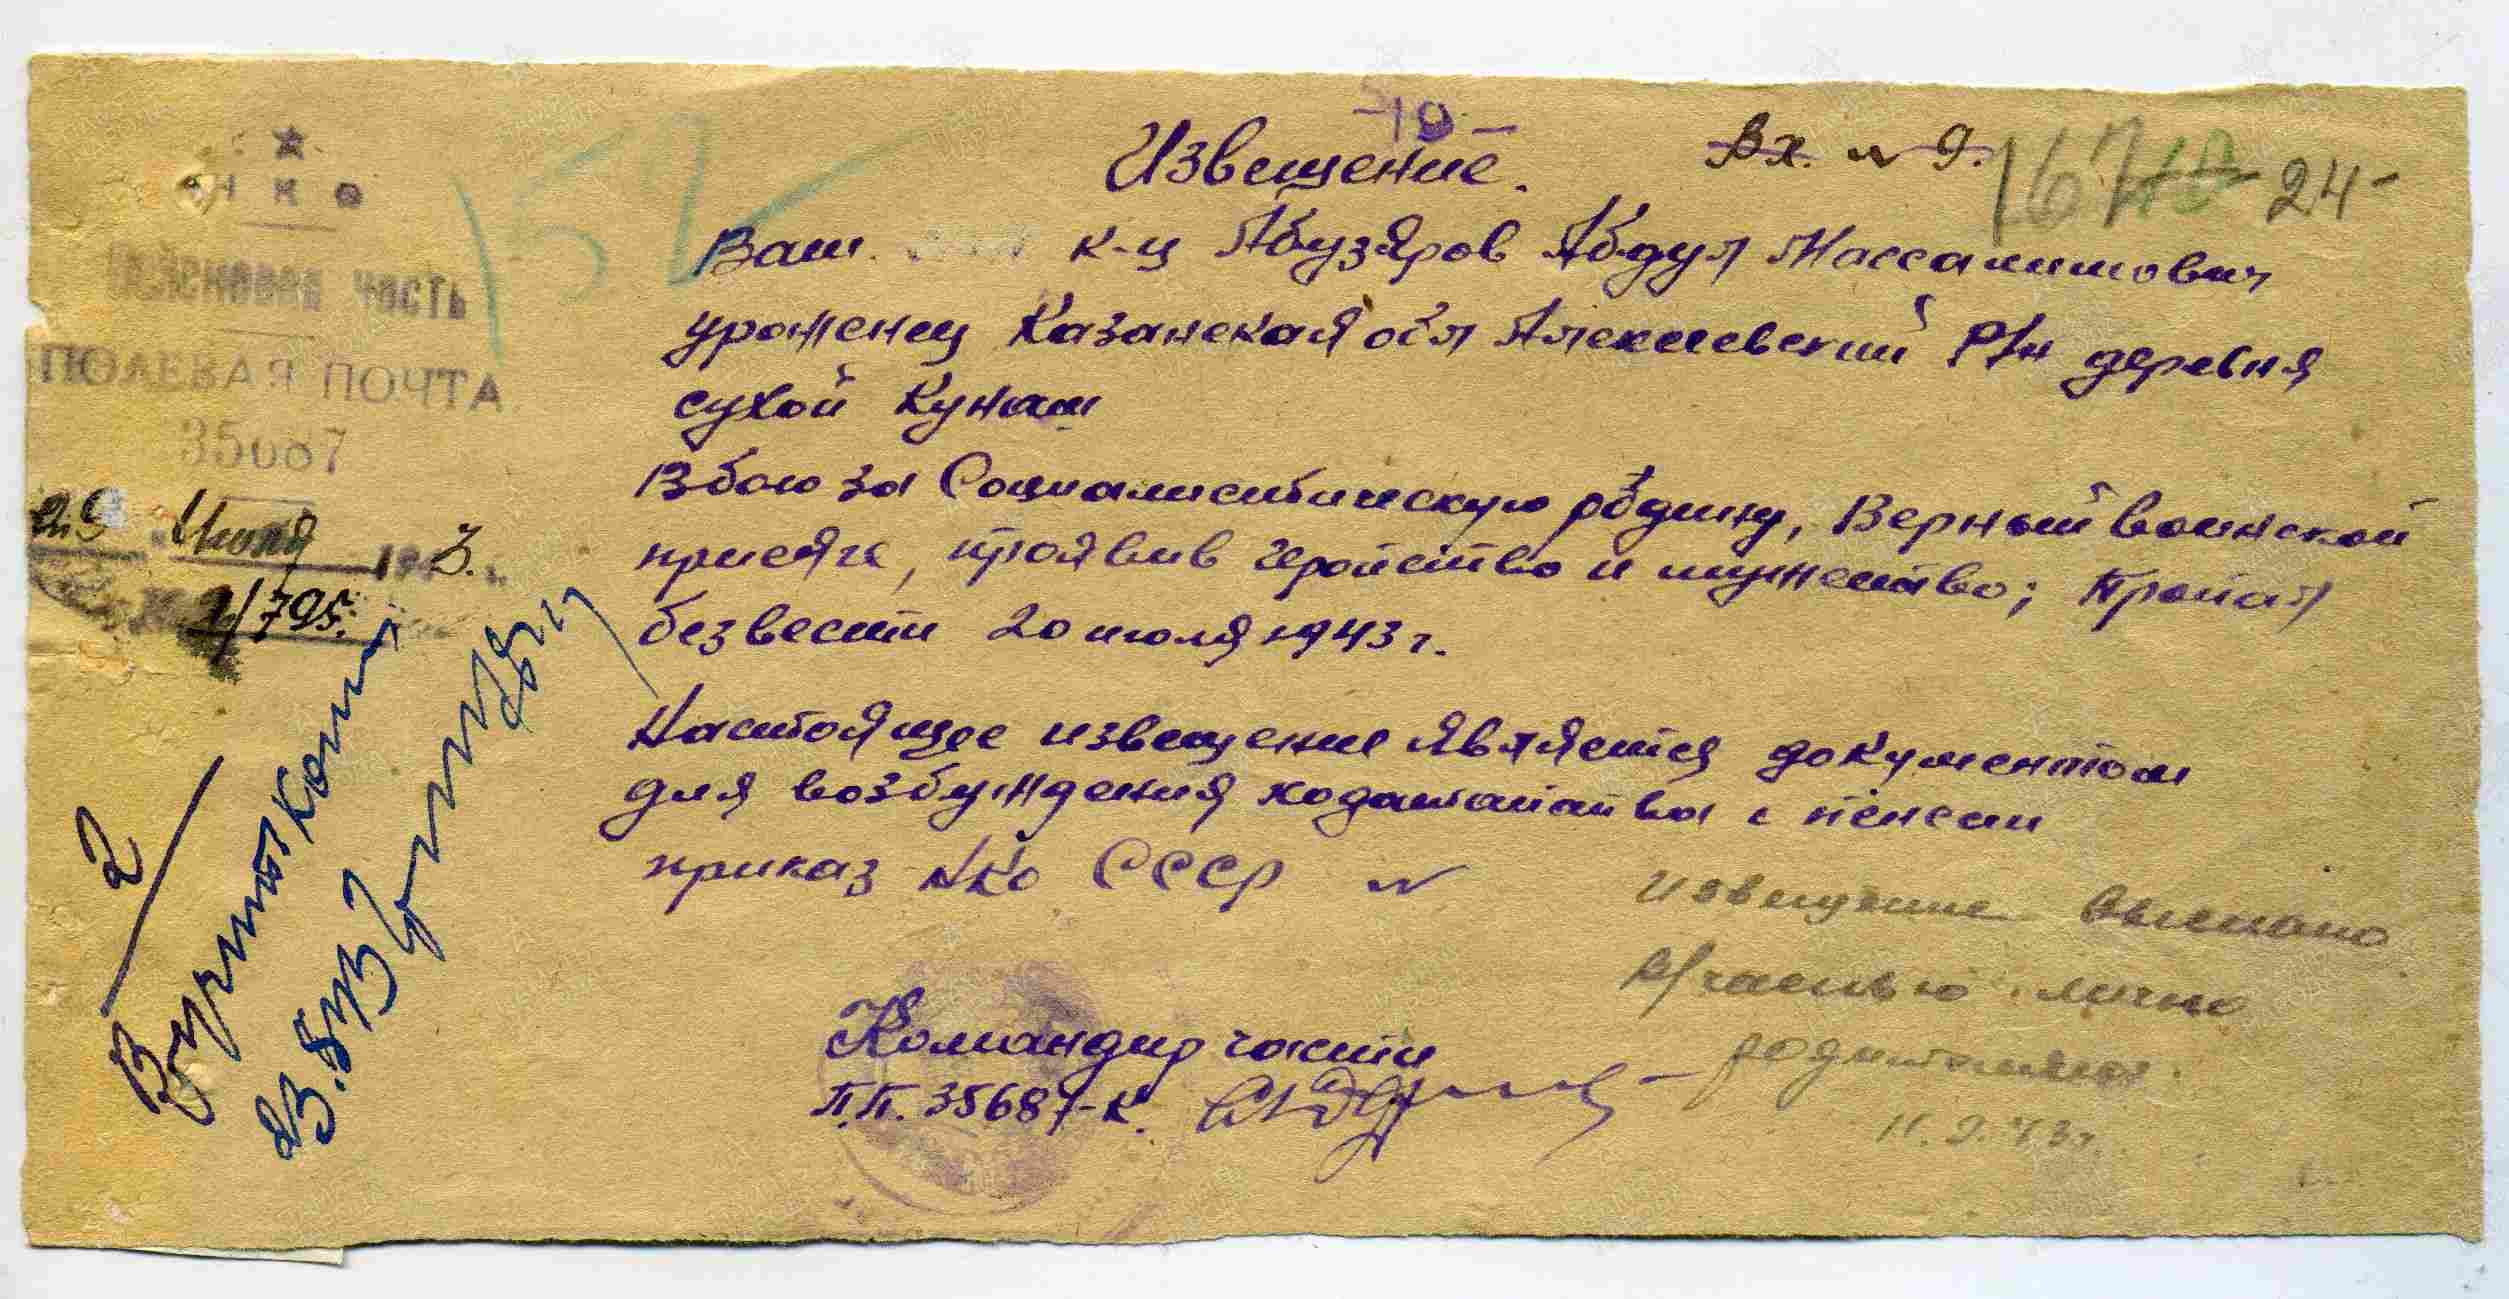 НКО
Войсковая часть
ПОЛЕВАЯ ПОЧТА
35687
29 Июля 1943.
2/795.
Извещение.
Вх. № 9.
24-
152
Ваш к-ц Абузяров Абдул Массалимович
уроженец Казанская обл Алексеевский Р/н деревня
сухой Кунаш
В бою за Социалистическую родину, Верный воинской
присяге, проявив геройство и мужество; Пропал
безвести 20 июля 1943 г.
Настоящее извещение является документом
для возбуждения ходатайства о пенсии
приказ НКО СССР №
Командир части
П.П. 35687-К.
извещение выслано
В/частью лично
родителям.
11.9.43 г.
2
Вручить копию
23.8.43